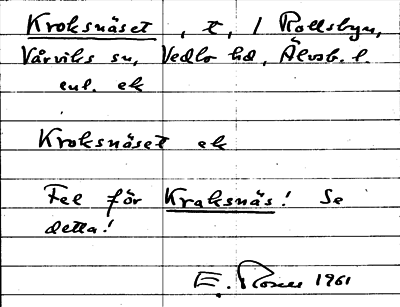 Kroksnäset, t, / Rollsbyn,
Vårviks sn, Vedbo hd, Älvsb. l.
enl. ek
Kroksnäset ek
Fel för Kraksnäs! Se
detta!
E. 1961